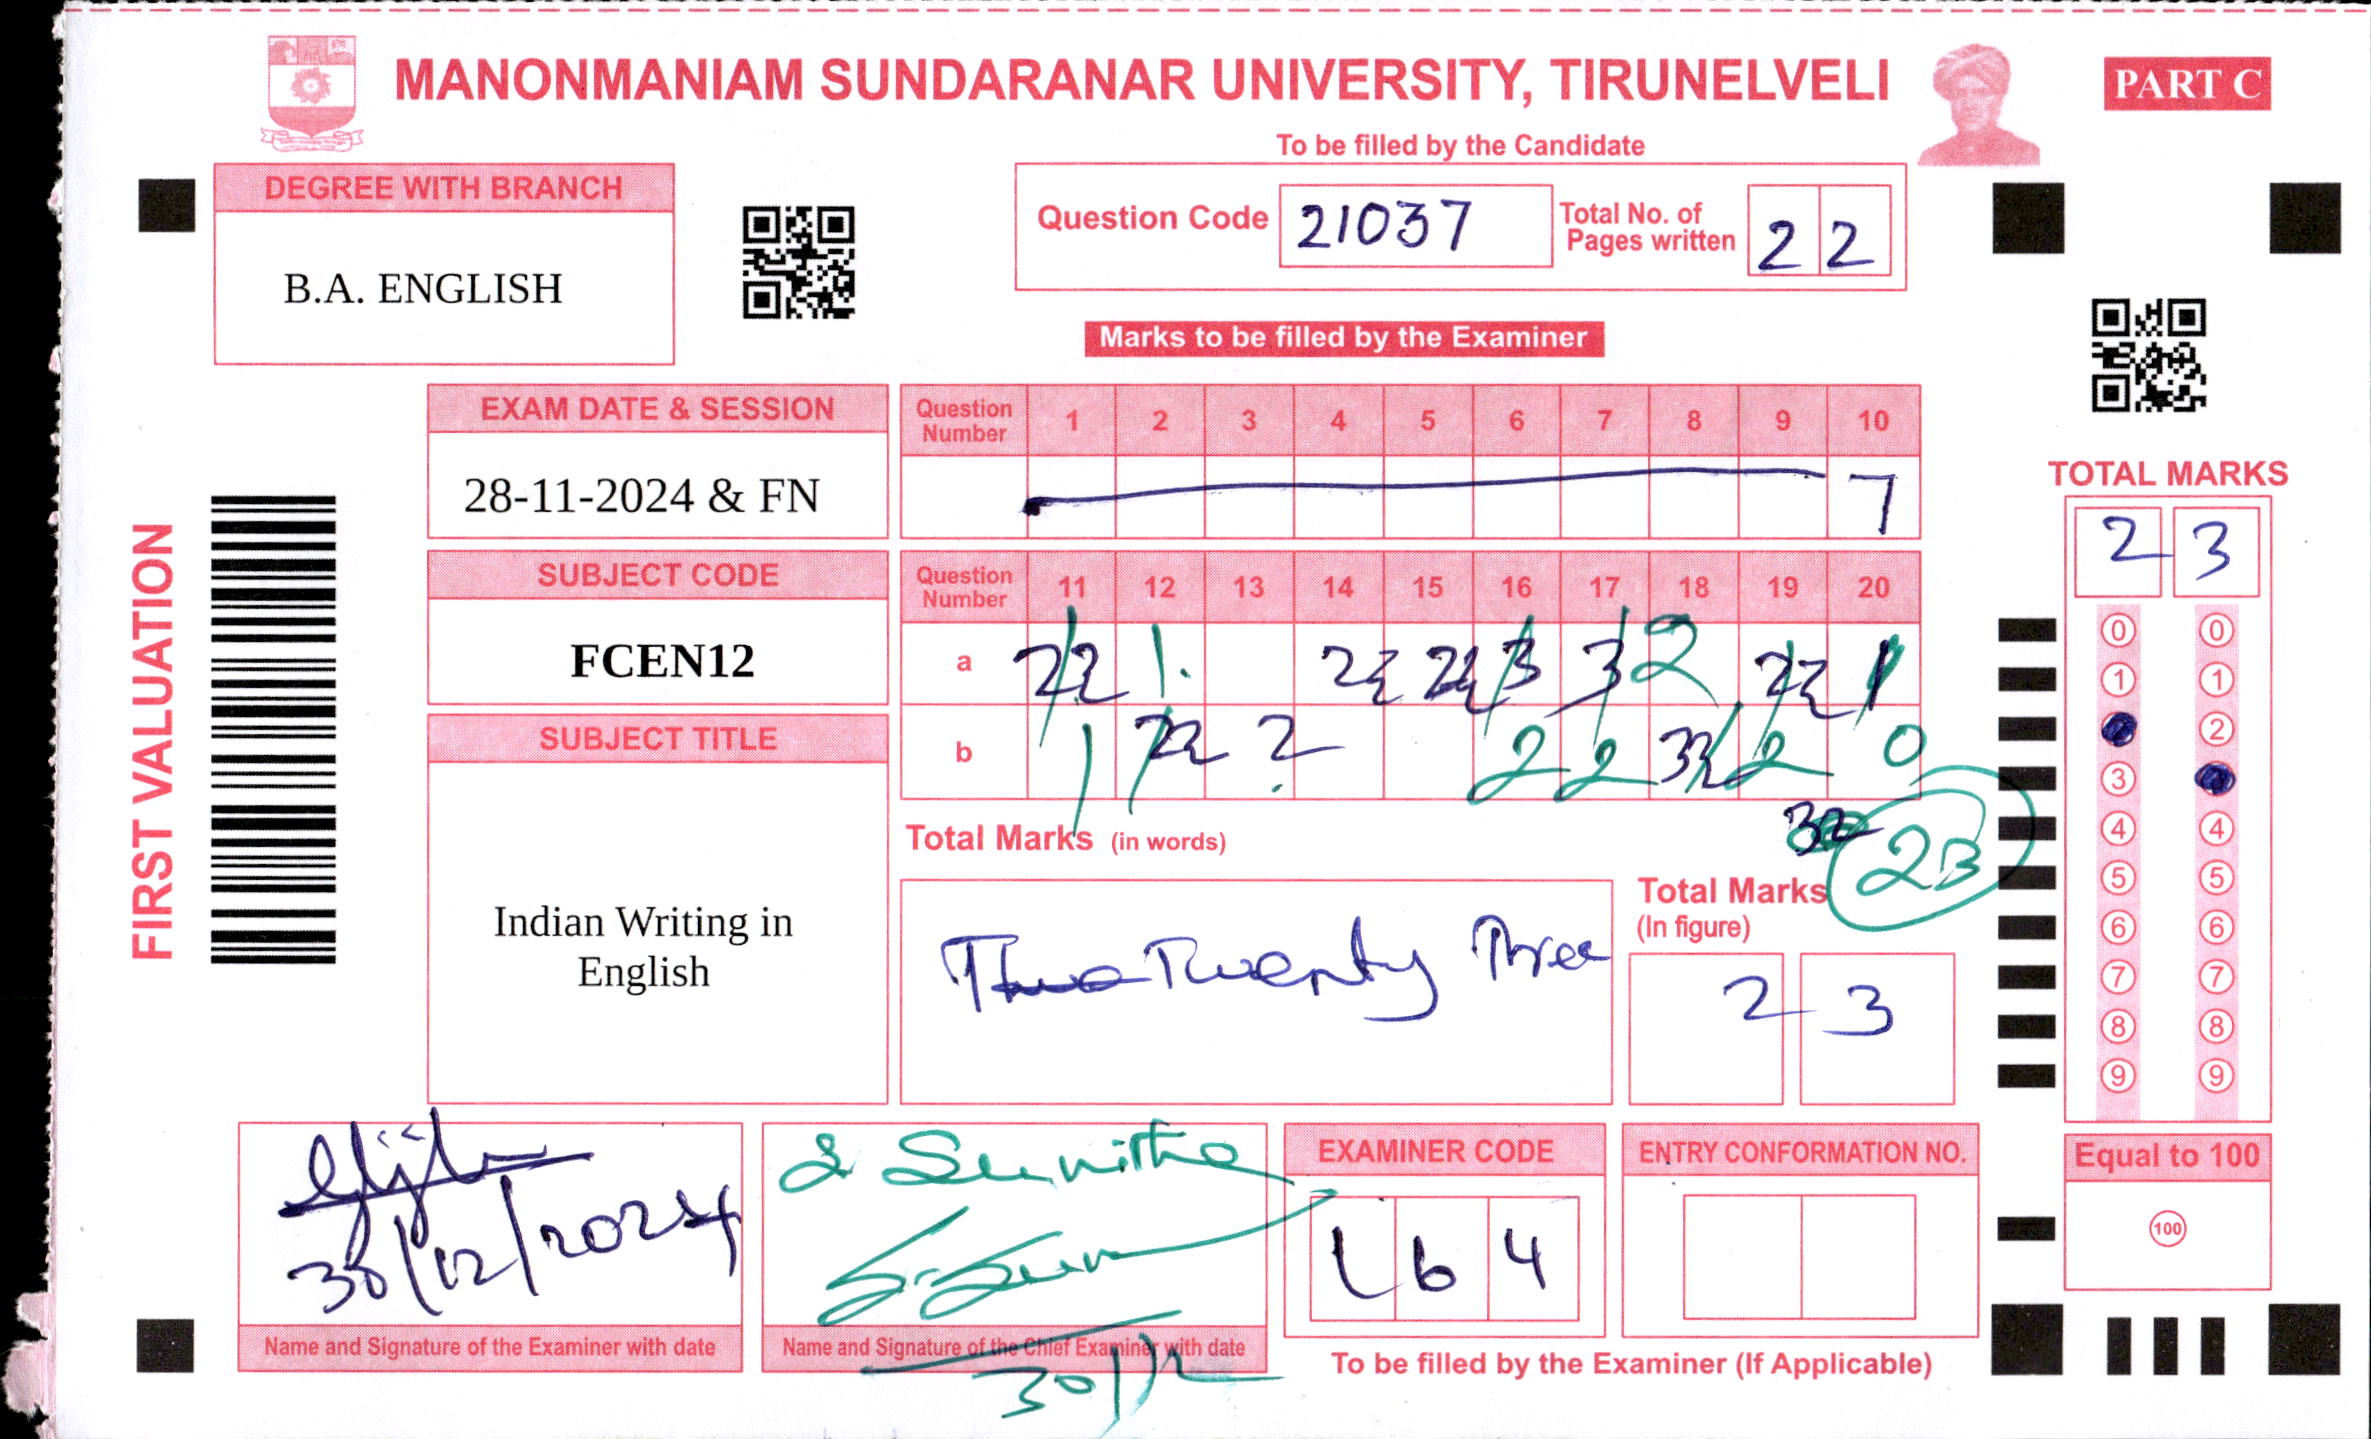 MANONMANIAM SUNDARANAR UNIVERSITY, TIRUNELVELI
PART C
To be filled by the Candidate
DEGREE WITH BRANCH
B.A. ENGLISH
Question Code 21037 Total No. of Pages written 2 2
Marks to be filled by the Examiner
EXAM DATE & SESSION
28-11-2024 & FN
Question Number 1 2 3 4 5 6 7 8 9 10
7
SUBJECT CODE
FCEN12
Question Number 11 12 13 14 15 16 17 18 19 20
a
b
SUBJECT TITLE
Indian Writing in
English
Total Marks (in words)
Twenty Three
Total Marks
(In figure)
2 3
23
FIRST VALUATION
TOTAL MARKS
2 3
0 0
1 1
2
3
4 4
5 5
6 6
7 7
8 8
9 9
Equal to 100
100
30/12/2024
Name and Signature of the Examiner with date
S Sunitha
30/12
Name and Signature of the Chief Examiner with date
EXAMINER CODE
1 6 4
ENTRY CONFORMATION NO.
To be filled by the Examiner (If Applicable)